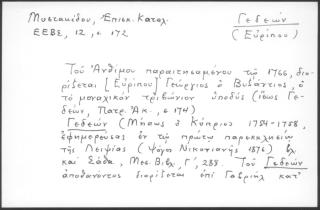 Μυστακίδου, Ἐπισκ. Καταλ. Γεδεών
ΕΕΒΣ, 12, σ 172 (Εὐρίπου)
Τοῦ Ἀνθίμου παραιτησαμένου τῷ 1766, διο-
ρίζεται [Εὐρίπου] Γεώργιος ὁ Βυζάντιος, ὁ
τὸ μοναχικὸν τριβώνιον ὑποδὺς (ἴσως Γε-
δεών, Πατρ. Ἀκ., σ 174)
Γεδεὼν (Μηνᾶς ὁ Κύπριος 1754-1758,
ἐφημερεύσας ἐν τῷ πρώτῳ παρεκκλησίῳ
τῆς Λειψίας (Νικοτιανῆς 1876)
καὶ Σάθα, Μεσ. Βιβλ. Γ', 288. Τοῦ Γεδεὼν
ἀποθανόντος διορίζεται ἐπὶ Γαβριὴλ κατ'